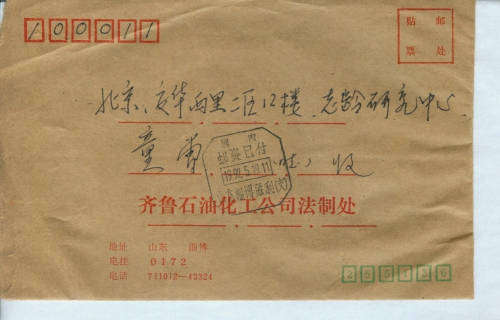 100011
贴 邮
票 处
北京、安华西里二区12楼、老龄研究中心
童 收
国内
邮资已付
1992.5.19.11
齐鲁石油化工公司法制处
地址 山东 淄博
电挂 0172
电话 711012—43324
255436